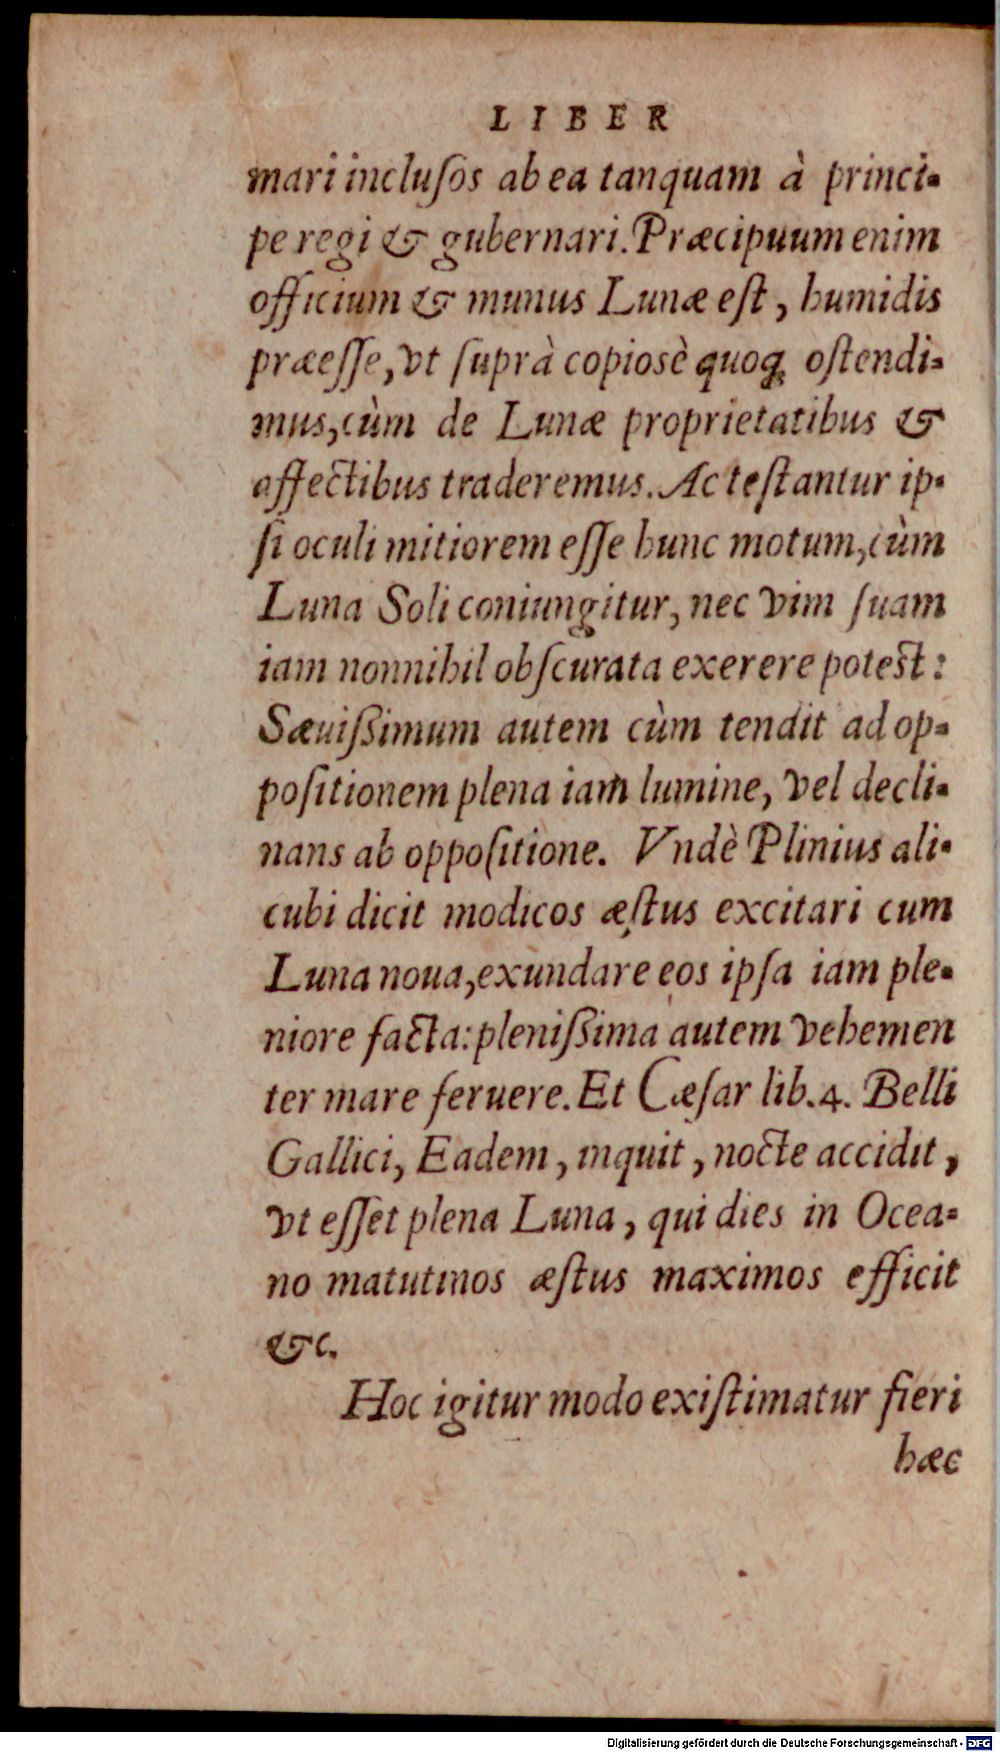 LIBER
mari incluſos ab ea tanquam à princi-
pe regi & gubernari. Præcipuum enim
officium & munus Lunæ eſt, humidis
præeſſe, vt ſuprà copiosè quoq; oſtendi-
mus, cùm de Lunæ proprietatibus &
affectibus traderemus. Ac teſtantur ip-
ſi oculi mitiorem eſſe hunc motum, cùm
Luna Soli coniungitur, nec vim ſuam
iam nonnihil obſcurata exerere poteſt:
Sæuiſsimum autem cùm tendit ad op-
poſitionem plena iam lumine, vel decli-
nans ab oppoſitione. Vndè Plinius ali-
cubi dicit modicos æſtus excitari cum
Luna noua, exundare eos ipſa iam ple-
niore facta: pleniſsima autem vehemen
ter mare feruere. Et Cæſar lib. 4. Belli
Gallici, Eadem, inquit, nocte accidit,
vt eſſet plena Luna, qui dies in Ocea-
no matutinos æſtus maximos efficit
&c.
Hoc igitur modo exiſtimatur fieri
hæc
Digitalisierung gefördert durch die Deutsche Forschungsgemeinschaft - DFG